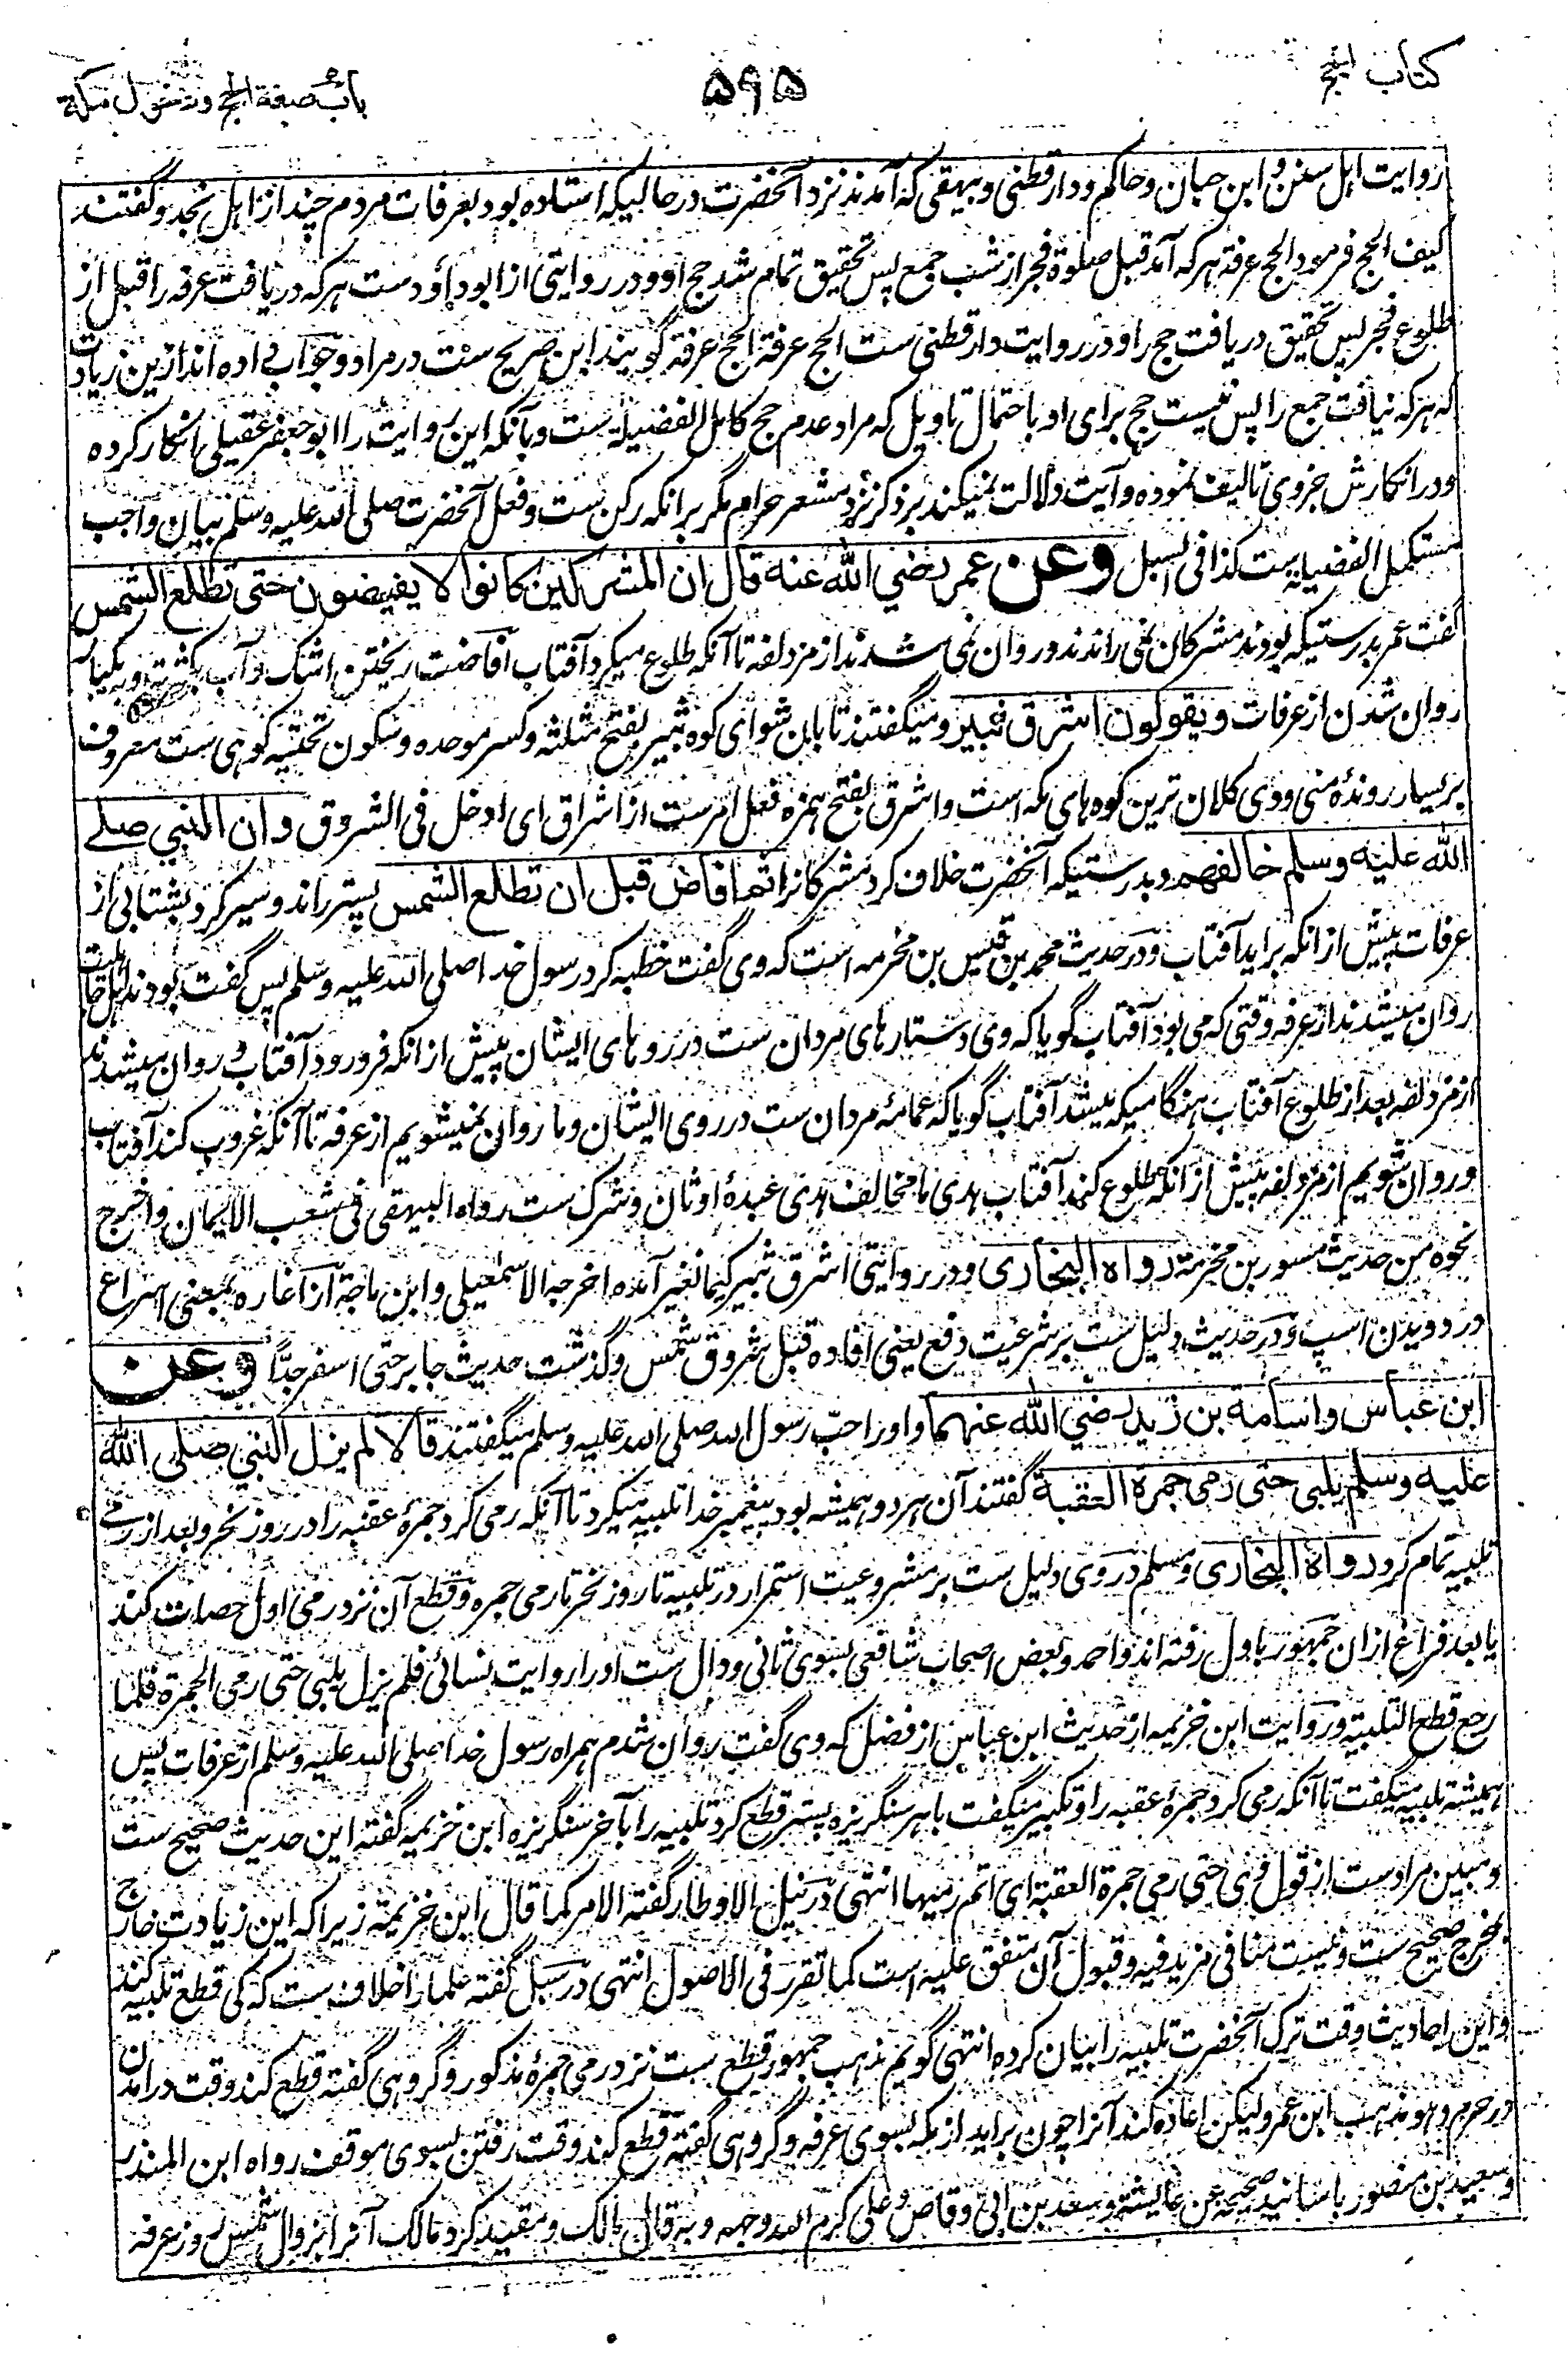 کتاب الحج
۵۹۵
باب صفة الحج ودخول مکة
روایت اہل سنن و ابن حبان و حاکم و دارقطنی و بیہقی کہ آمدند نزد آنحضرت درحالیکہ استادہ بود بعرفات مردم چند از اہل نجد و گفتند
کیف الحج فرمود الحج عرفة ہر کہ آمد قبل صلوة فجر از شب جمع پس تحقیق تمام شد حج او و در روایتی از ابوداؤدست ہر کہ دریافت عرفہ را قبل از
طلوع فجر پس تحقیق دریافت حج را و در روایت دارقطنی ست الحج عرفة الحج عرفة گویند این صریح ست در مراد و جواب داده اند ازین زیادت
کہ ہر کہ نیافت جمع را پس نیست حج برای او باحتمال تاویل کہ مراد عدم حج کامل الفضیلة ست و بآنکہ این روایت را ابوجعفر عقیلی انکار کردہ
و در انکارش جزوی تالیف نمودہ و آیت دلالت نمیکند بر ذکر نزد مشعر حرام مگر برانکہ رکن ست و فعل آنحضرت صلی اللہ علیہ وسلم بیان واجب
مستکمل الفضیلة ست کذا فی السبل وعن عمر رضي الله عنه قال ان المشرکین کانوا لا یفیضون حتی تطلع الشمس
گفت عمر بدرستیکہ بودند مشرکان نمی راندند و روان نمی شدند از مزدلفہ تا آنکہ طلوع میکرد آفتاب افاضت ریختن اشک و آب
روان شدن از عرفات ویقولون اشرق ثبیر و میگفتند تابان شو ای کوہ ثبیر بفتح مثلثہ و کسر موحدہ و سکون تحتیہ کوہی ست معروف
بر یسار روندۂ منی و وی کلان ترین کوہ ہای مکہ است و اشرق بفتح ہمزہ فعل امرست از اشراق ای ادخل فی الشروق وان النبي صلے
الله علیه وسلم خالفهم و بدرستیکہ آنحضرت خلاف کرد مشرکانرا ثم افاض قبل ان تطلع الشمس پستر راند و سیر کرد بشتابی از
عرفات پیش ازانکہ براید آفتاب و در حدیث محمد بن قیس بن مخرمہ است کہ وی گفت خطبہ کرد رسول خدا صلی اللہ علیہ وسلم پس گفت بودند اہل جاہلیت
روان میشدند از عرفہ وقتی کہ می بود آفتاب گویا کہ وی دستارہای مردان ست در روہای ایشان پیش ازانکہ فرو رود آفتاب و روان میشدند
از مزدلفہ بعد از طلوع آفتاب ہنگامیکہ میشد آفتاب گویا کہ عمامۂ مردان ست در روی ایشان و ما روان نمیشویم از عرفہ تا آنکہ غروب کند آفتاب
و روان شویم از مزدلفہ پیش ازانکہ طلوع کند آفتاب ہدی ما مخالف ہدی عبدۂ اوثان و شرک ست رواہ البیہقی فی شعب الایمان و اخرج
نحوہ من حدیث مسور بن مخرمة رواه البخاری و در روایتی اشرق ثبیر کیما نغیر آمدہ اخرجہ الاسمعیلی و ابن ماجة از اغارہ بمعنی اسراع
در دویدن اسپ و در حدیث دلیل ست بر شرعیت دفع یعنی افادہ قبل شروق شمس و گذشت حدیث جابر حتی اسفر جدًّا وعن
ابن عباس واسامة بن زید رضي الله عنهما و او را حب رسول اللہ صلی اللہ علیہ وسلم میگفتند قالا لم یزل النبي صلی الله
علیه وسلم یلبی حتی رمی جمرة العقبة گفتند آن ہر دو ہمیشہ بود پیغمبر خدا تلبیہ میکرد تا آنکہ رمی کرد جمرۂ عقبہ را در روز نحر و بعد از رمی
تلبیہ تمام کرد رواه البخاری و مسلم در وی دلیل ست بر مشروعیت استمرار در تلبیہ تا روز نحر تا رمی جمرہ و قطع آن نزد رمی اول حصات کند
یا بعد فراغ ازان جمہور باول رفتہ اند و احمد و بعض اصحاب شافعی بسوی ثانی و دال ست او را روایت نسائی فلم یزل یلبی حتی رمی الجمرة فلما
رجع قطع التلبیة و روایت ابن خزیمہ از حدیث ابن عباس از فضل کہ وی گفت روان شدم ہمراہ رسول خدا صلی اللہ علیہ وسلم از عرفات پس
ہمیشہ تلبیہ میگفت تا آنکہ رمی کرد جمرۂ عقبہ را و تکبیر میگفت با ہر سنگریزہ پستر قطع کرد تلبیہ را با آخر سنگریزہ ابن خزیمہ گفتہ این حدیث صحیح ست
و مبین مرادست از قول وی حتی رمی جمرة العقبة ای اتم رمیہا انتہی در نیل الاوطار گفتہ الامر کما قال ابن خزیمة زیرا کہ این زیادت خارج
بمخرج صحیح ست و نیست منافی مزید فیہ و قبول آن متفق علیہ است کما تقرر فی الاصول انتہی در سبل گفتہ علما را خلاف ست کہ کی قطع تلبیہ کند
و این احادیث وقت ترک آنحضرت تلبیہ را بیان کردہ انتہی گویم مذہب جمہور قطع ست نزد رمی جمرۂ مذکور و گروہی گفتہ قطع کند وقت درآمدن
در حرم و ہو مذہب ابن عمر و لیکن اعادہ کند آنرا چون براید از مکہ بسوی عرفہ و گروہی گفتہ قطع کند وقت رفتن بسوی موقف رواہ ابن المنذر
و سعید بن منصور باسانید صحیحہ عن عایشة و سعد بن ابی وقاص و علی کرم اللہ وجہہ و بہ قال مالک و مقید کرد مالک آنرا بزوال شمس روز عرفہ